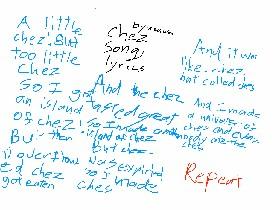 A little
chez! But
too little
chez
So I got
an island
of chez!
But then
it overflowed
chez
got eaten
by
chez
song
lyrics
And the chez
tasted great
So I made an
island of chez
but chez
was expired
so I made
chez
And it was
like chez
but called chez
And I made
a universe of
chez and
ate the
chez
Repeat